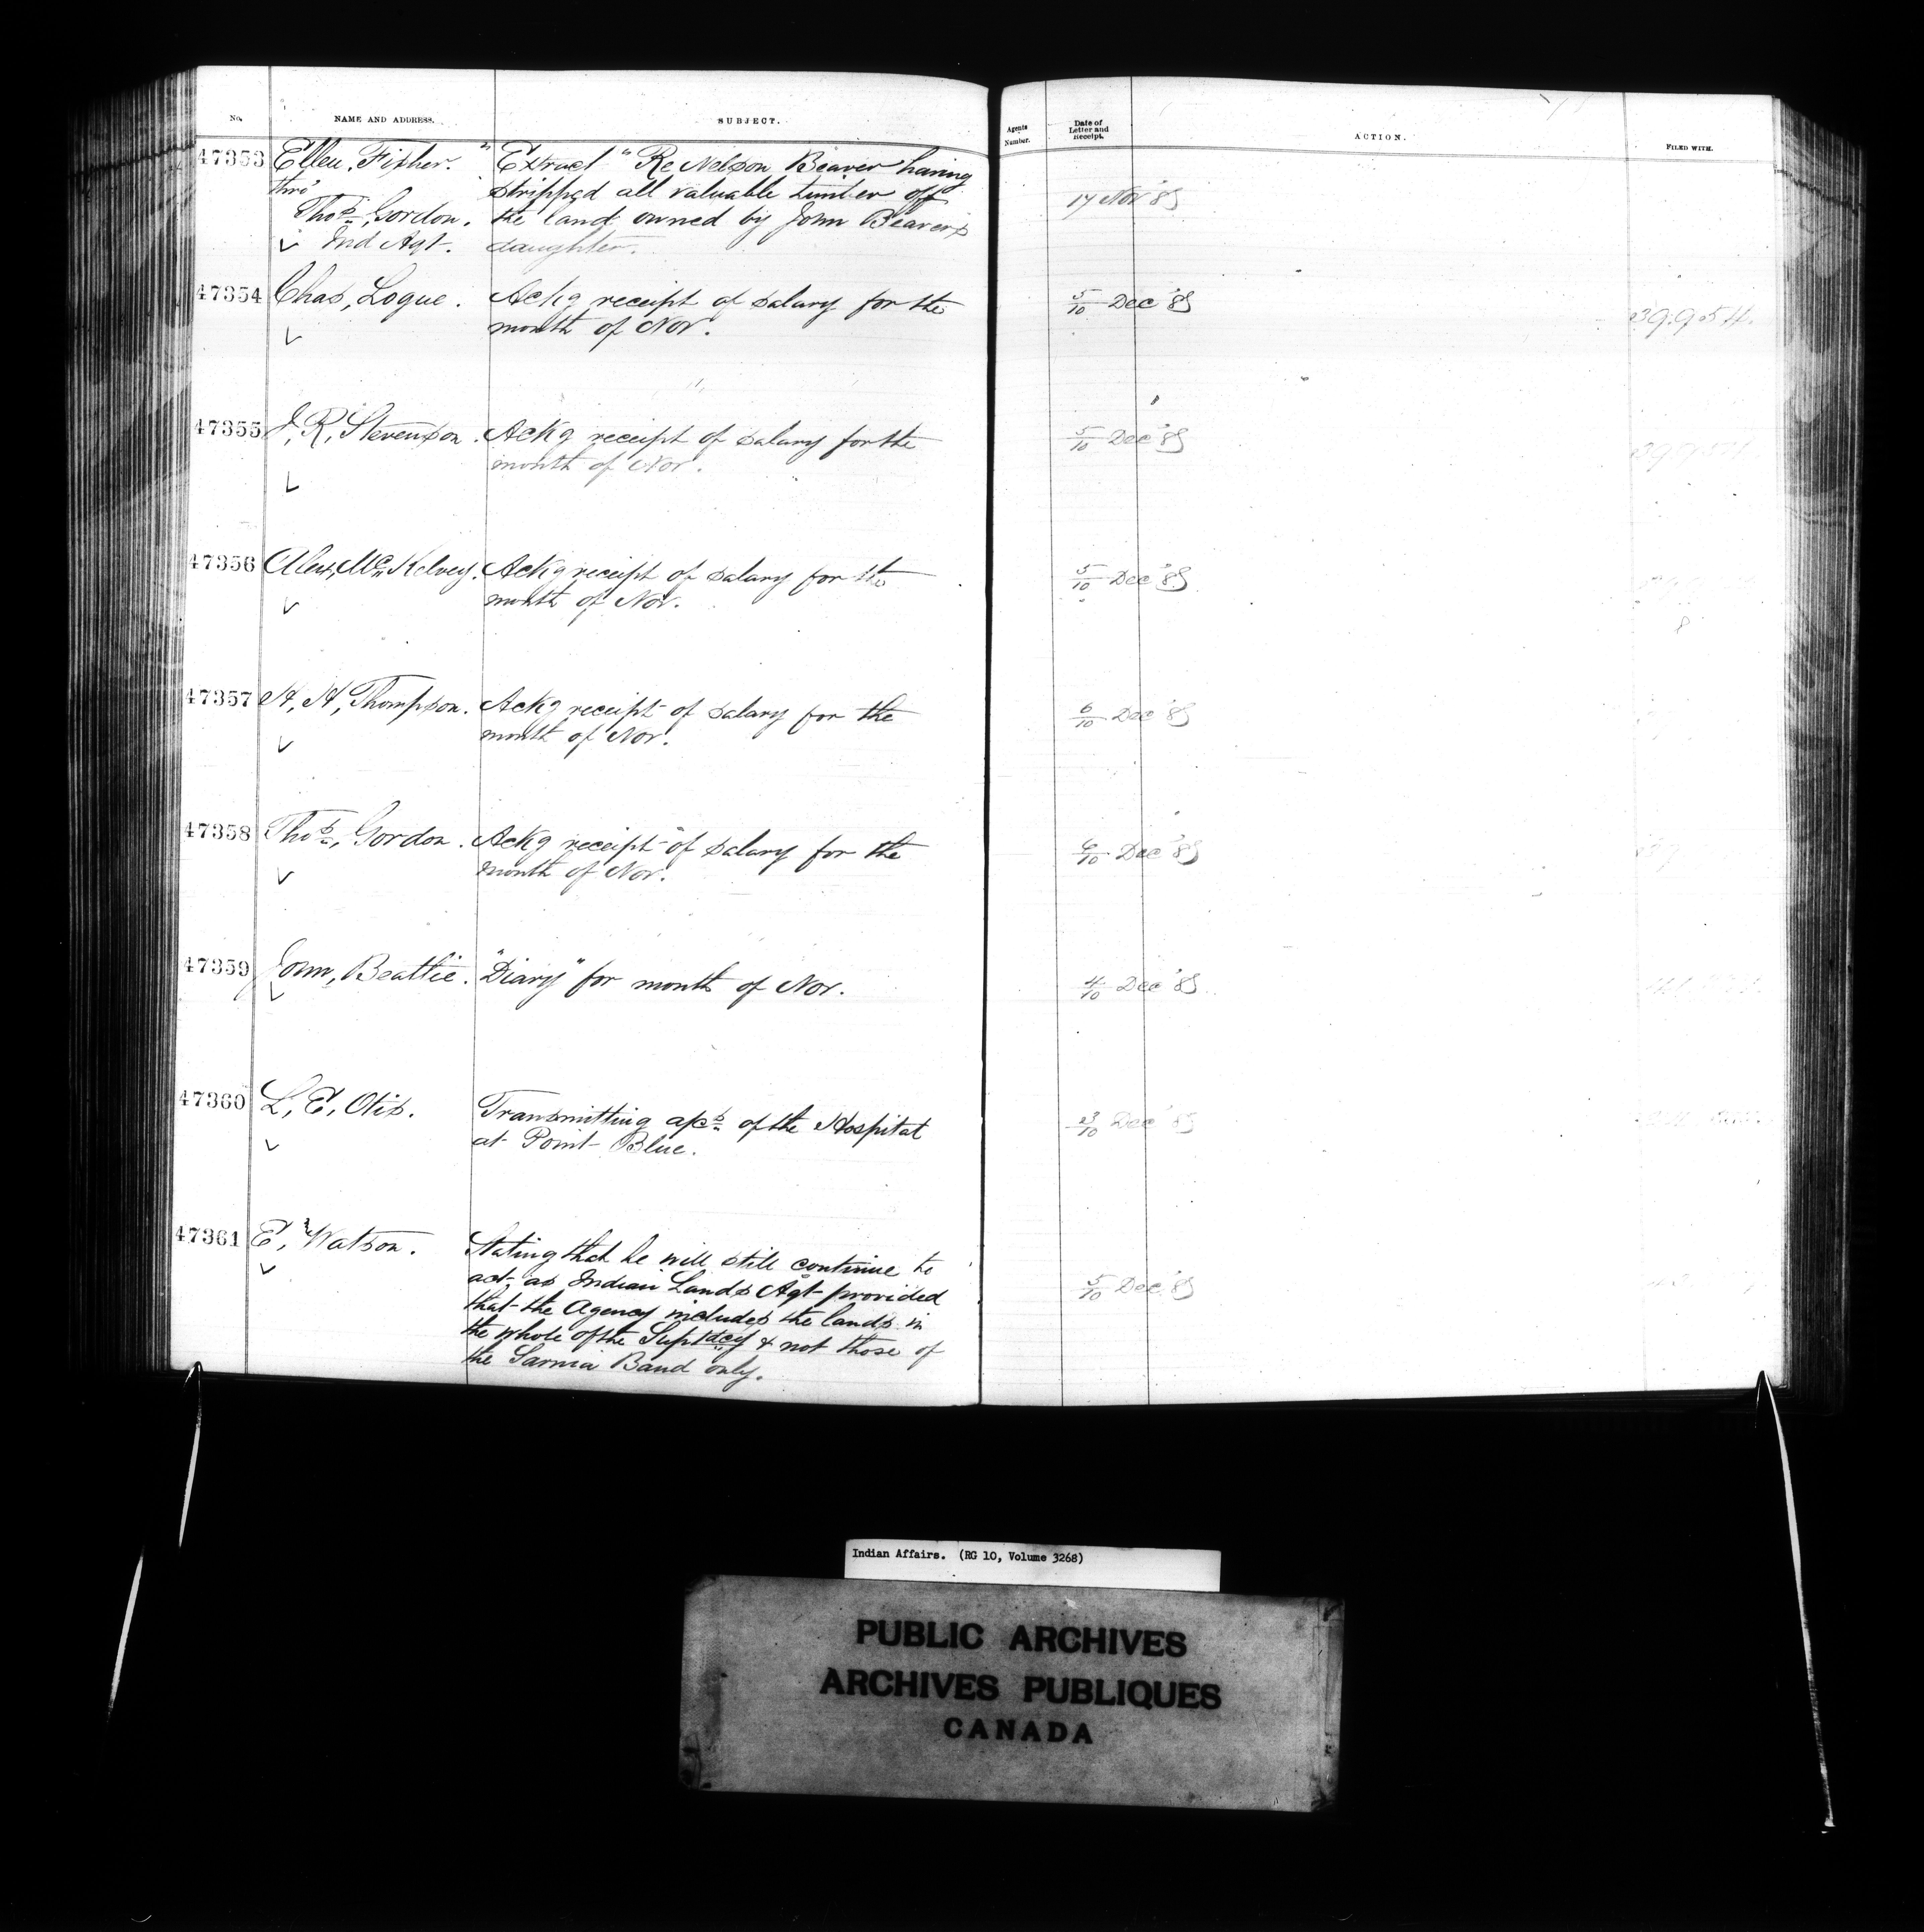 No. NAME AND ADDRESS. SUBJECT. Agents Number. Date of Letter and Receipt. ACTION. FILED WITH.
47353 Ellen, Fisher. "Extract" Re Nelson Beaver having
thro' stripped all valuable timber off 17 Nov '85
Thos, Gordon. the land owned by John Beavers
Ind Agt. daughter.
47354 Chas, Logue. Ackg receipt of salary for the 5/10 Dec '85 39954.
month of Nov.
47355 J, R, Stevenson. Ackg receipt of salary for the 5/10 Dec '85
month of Nov.
47356 Alex, McKelvey. Ackg receipt of salary for the 5/10 Dec '85
month of Nov.
47357 H, H, Thompson. Ackg receipt of salary for the 6/10 Dec '85
month of Nov.
47358 Thos, Gordon. Ackg receipt of salary for the 6/10 Dec '85
month of Nov.
47359 John, Beattie. "Diary" for month of Nov. 4/10 Dec '85
47360 L, E, Otis. Transmitting a/cs of the Hospital 3/10 Dec '85
at Point Blue.
47361 E, Watson. Stating that he will still continue to
act as Indian Lands Agt provided 5/10 Dec '85
that the Agency includes the lands in
the whole of the Suptdcy & not those of
the Sarnia Band only.
Indian Affairs. (RG 10, Volume 3268)
PUBLIC ARCHIVES
ARCHIVES PUBLIQUES
CANADA